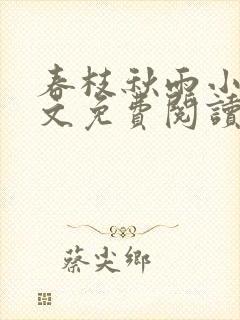 春枝秋雨小
文免費閱讀
蔡尖鄉